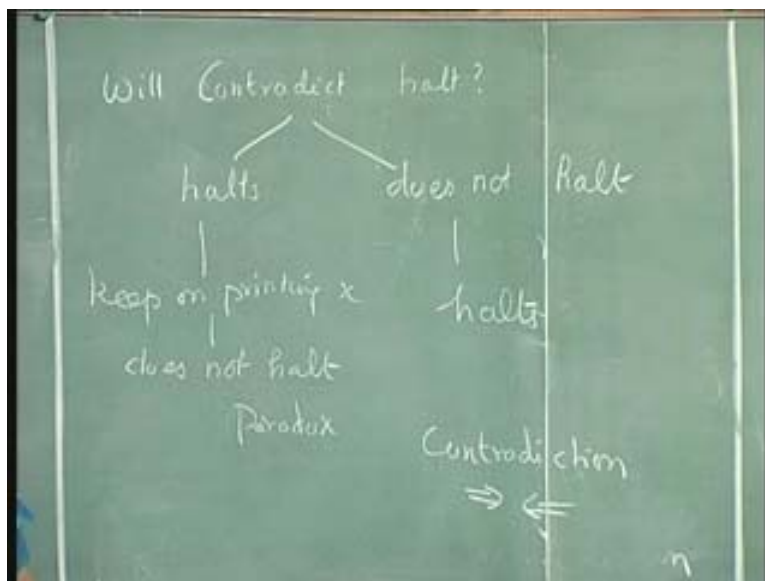 Will Contradict halt?
halts does not halt
keep on printing x halts
does not halt
Paradox
Contradiction
⇒ ⇐
n